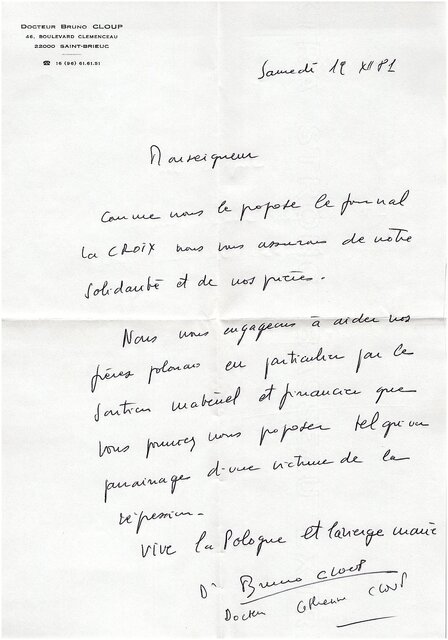 DOCTEUR BRUNO CLOUP
46, BOULEVARD CLEMENCEAU
22000 SAINT-BRIEUC
☎ 16 (96) 61.61.51
Samedi 19 XII 81
Monseigneur
Comme nous le propose le journal
la CROIX nous vous assurons de notre
solidarité et de nos prières.
Nous nous engageons à aider nos
frères polonais en particulier par le
soutien matériel et financier que
vous pourrez nous proposer tel qu'un
parrainage d'une victime de la
répression.
Vive la Pologne et la vierge marie
Dr Bruno CLOUP
Docteur Catherine CLOUP